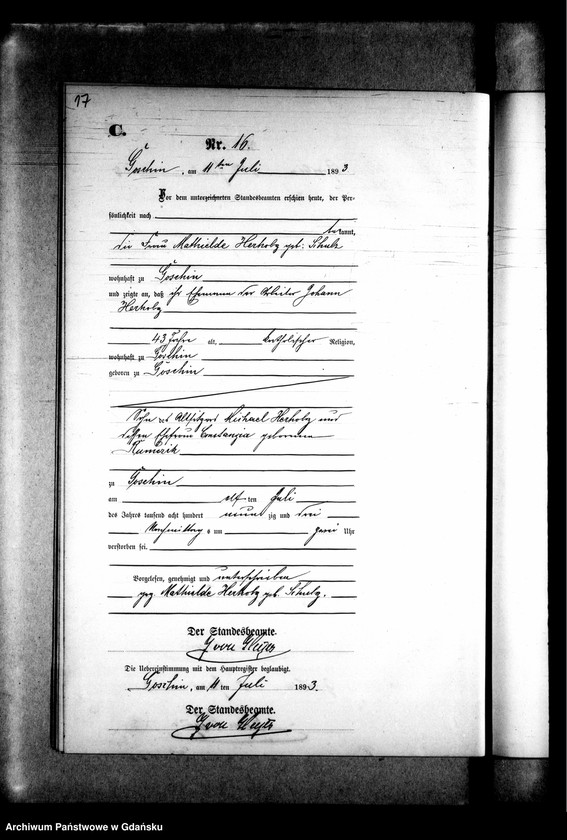 17
C.
Nr. 16.
Goschin, am 11ten Juli 1893
Vor dem unterzeichneten Standesbeamten erschien heute, der Per-
sönlichkeit nach
bekannt,
die Frau Mathielde Herholz geb. Schulz
wohnhaft zu Goschin
und zeigte an, daß ihr Ehemann der Arbeiter Johann
Herholz
43 Jahre alt, katholischer Religion,
wohnhaft zu Goschin
geboren zu Goschin
Sohn des Altsitzers Michael Herholz und
dessen Ehefrau Constanzia geborenen
zu Goschin
am elften Juli
des Jahres tausend acht hundert neunzig und drei
Nachmittags um zwei Uhr
verstorben sei.
Vorgelesen, genehmigt und unterschrieben
gez. Mathielde Herholz geb. Schulz.
Der Standesbeamte.
von
Die Uebereinstimmung mit dem Hauptregister beglaubigt.
Goschin, am 11ten Juli 1893.
Der Standesbeamte.
von
Archiwum Państwowe w Gdańsku